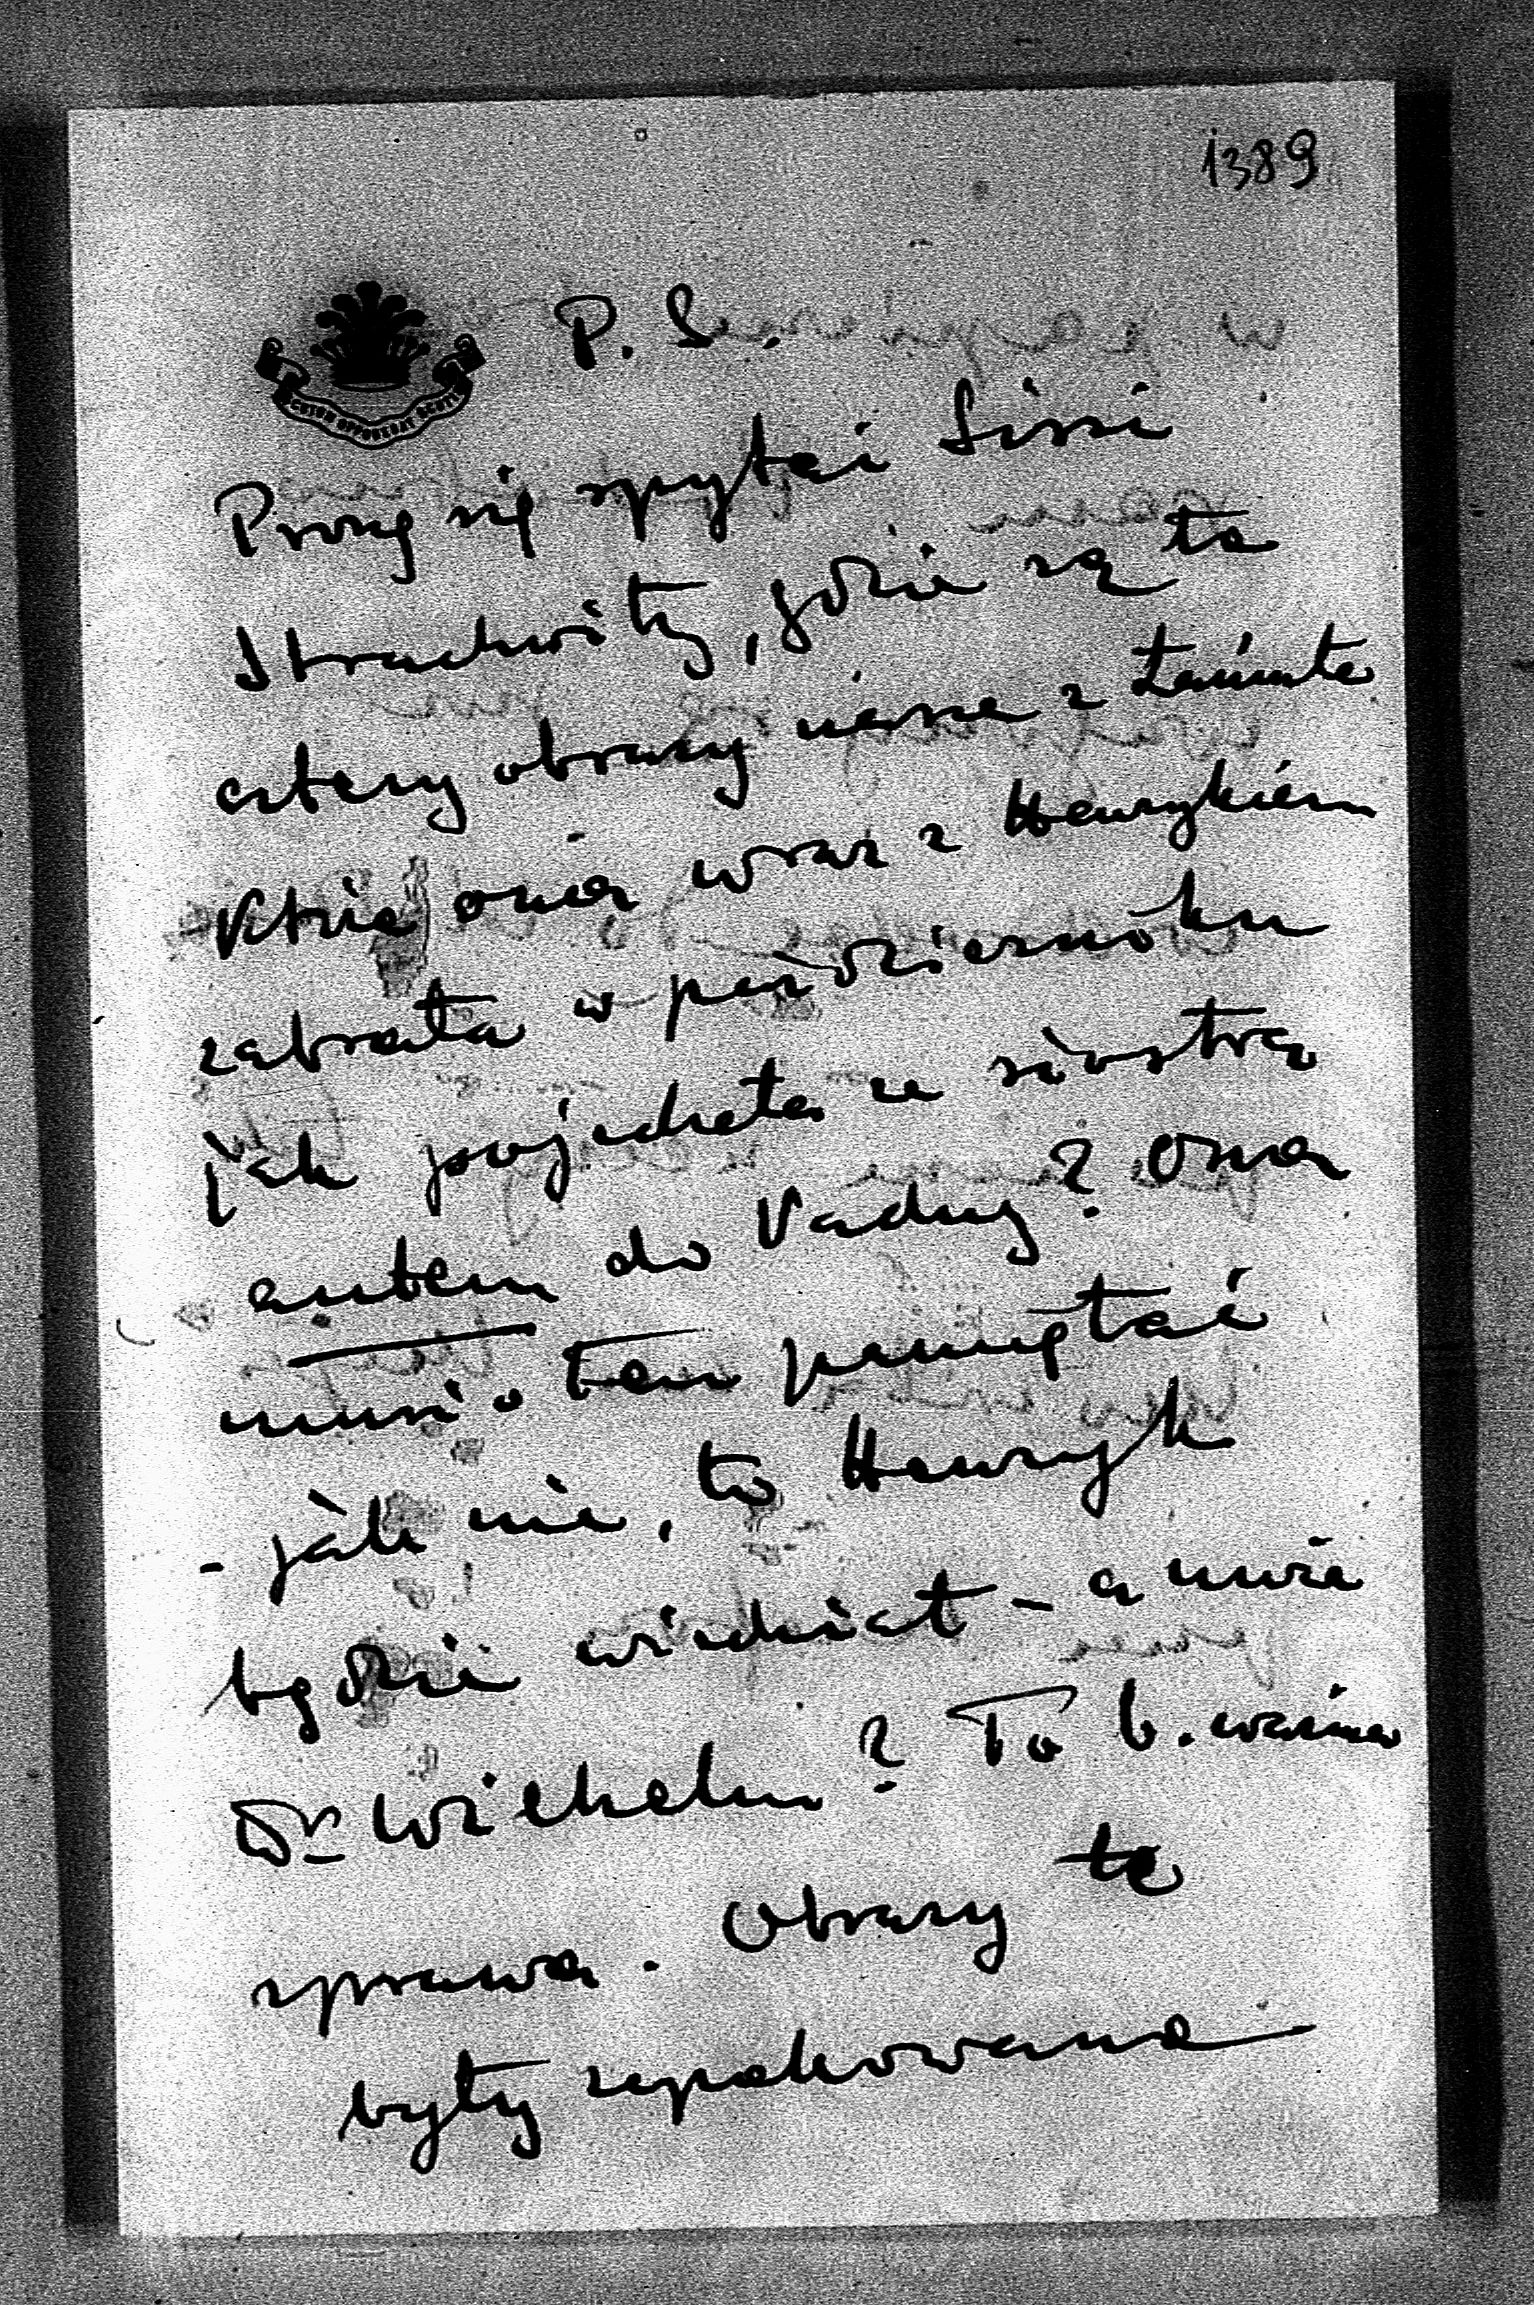 1389
P. S.
Proszę się spytać Sissi
Strachwitz, gdzie są te
cztery obrazy nasze z Łańcuta
które ona wraz z Henrykiem
zabrała w październiku
jak pojechała ze siostrą
autem do Vaduz? Ona
musi o tem pamiętać
- jak nie, to Henryk
będzie wiedział - a może
Dr Wilhelm? To b. ważna
sprawa. Obrazy te
były zapakowane